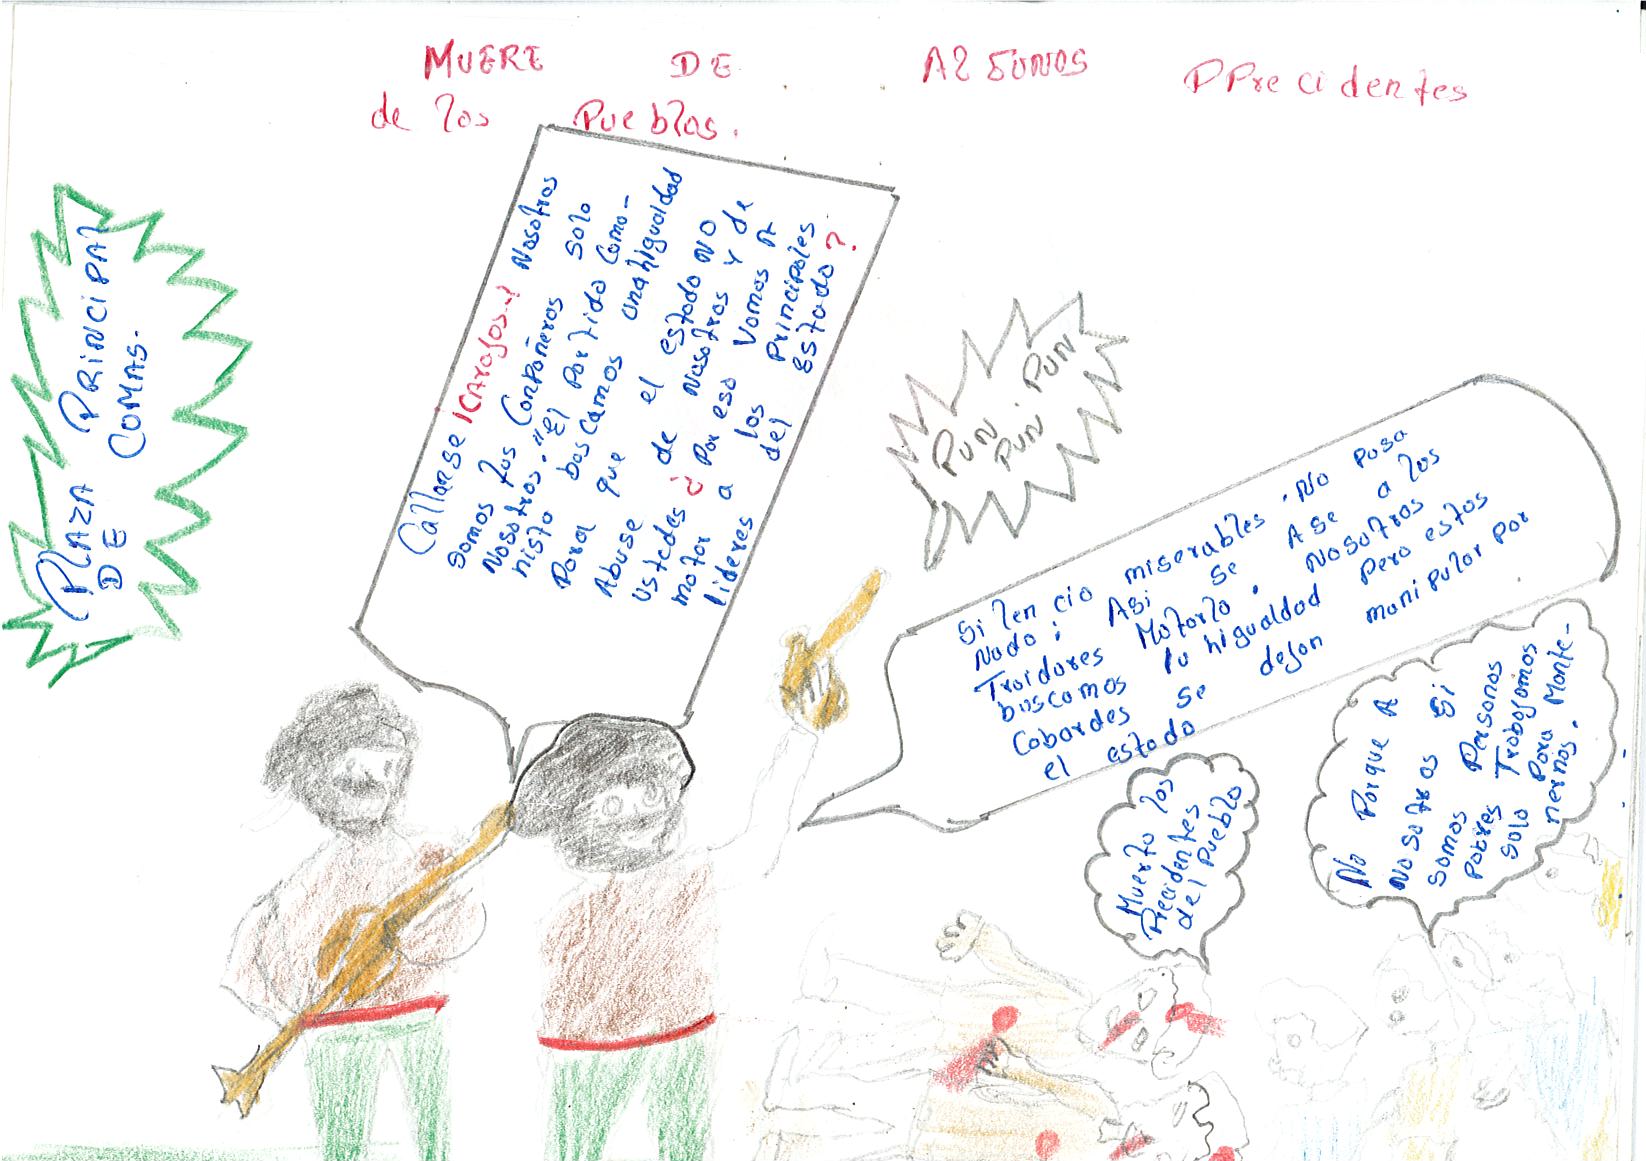 MUERE DE A2GUNOS PPrecidentes
de los Pueblos.
PLAZA PRINCIPAL
DE COMAS.
Callarse ¡CArajos..! Nosotros
somos tus Conpañeros solo
Nosotros. "El Partido Como-
nista buscamos una higualdad
Para que el estado NO
Abuse de Nosotros y de
Ustedes ¿ Por eso Vamos A
matar a los Principales
lideres del estado?
PUN. PUN
PUN
Silencio miserables. No pasa
Nada; Asi se Ase a los
Traidores Matarlo. Nosotros
buscamos la higualdad Pero estos
Cobardes se dejan manipular por
el estado
Muerto los
Precidentes
del Pueblo
No Porque A
Nosotros Si
Somos Personas
Pobres Trabajamos
Solo Para Mante-
nernos.